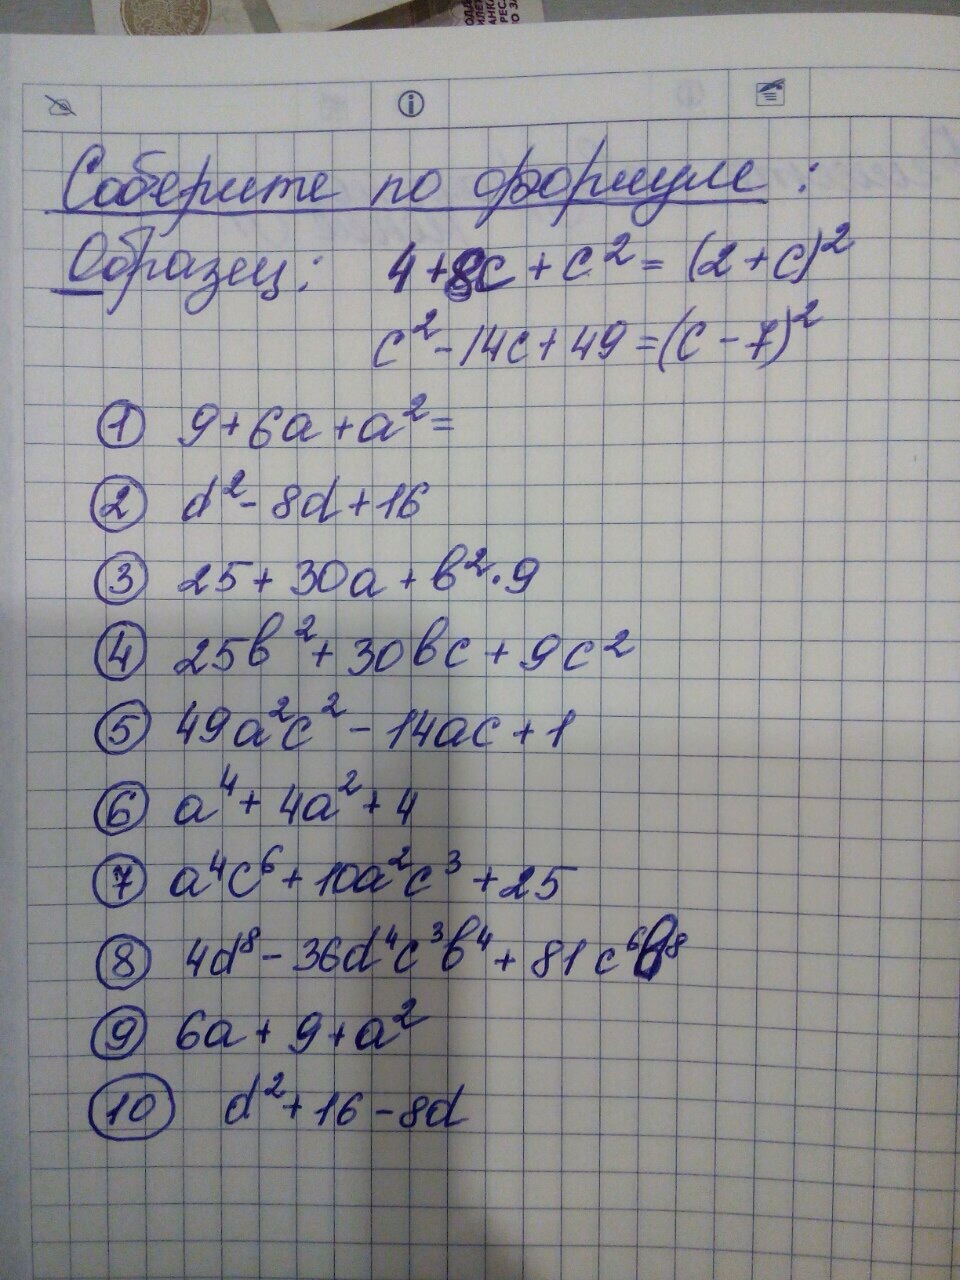 Соберите по формуле:
Образец: 4+8c+c²=(2+c)²
c²-14c+49=(c-7)²
① 9+6a+a²=
② d²-8d+16
③ 25+30a+в²·9
④ 25в²+30вc+9c²
⑤ 49a²c²-14ac+1
⑥ a⁴+4a²+4
⑦ a⁴c⁶+10a²c³+25
⑧ 4d⁸-36d⁴c³в⁴+81c⁶в⁸
⑨ 6a+9+a²
⑩ d²+16-8d